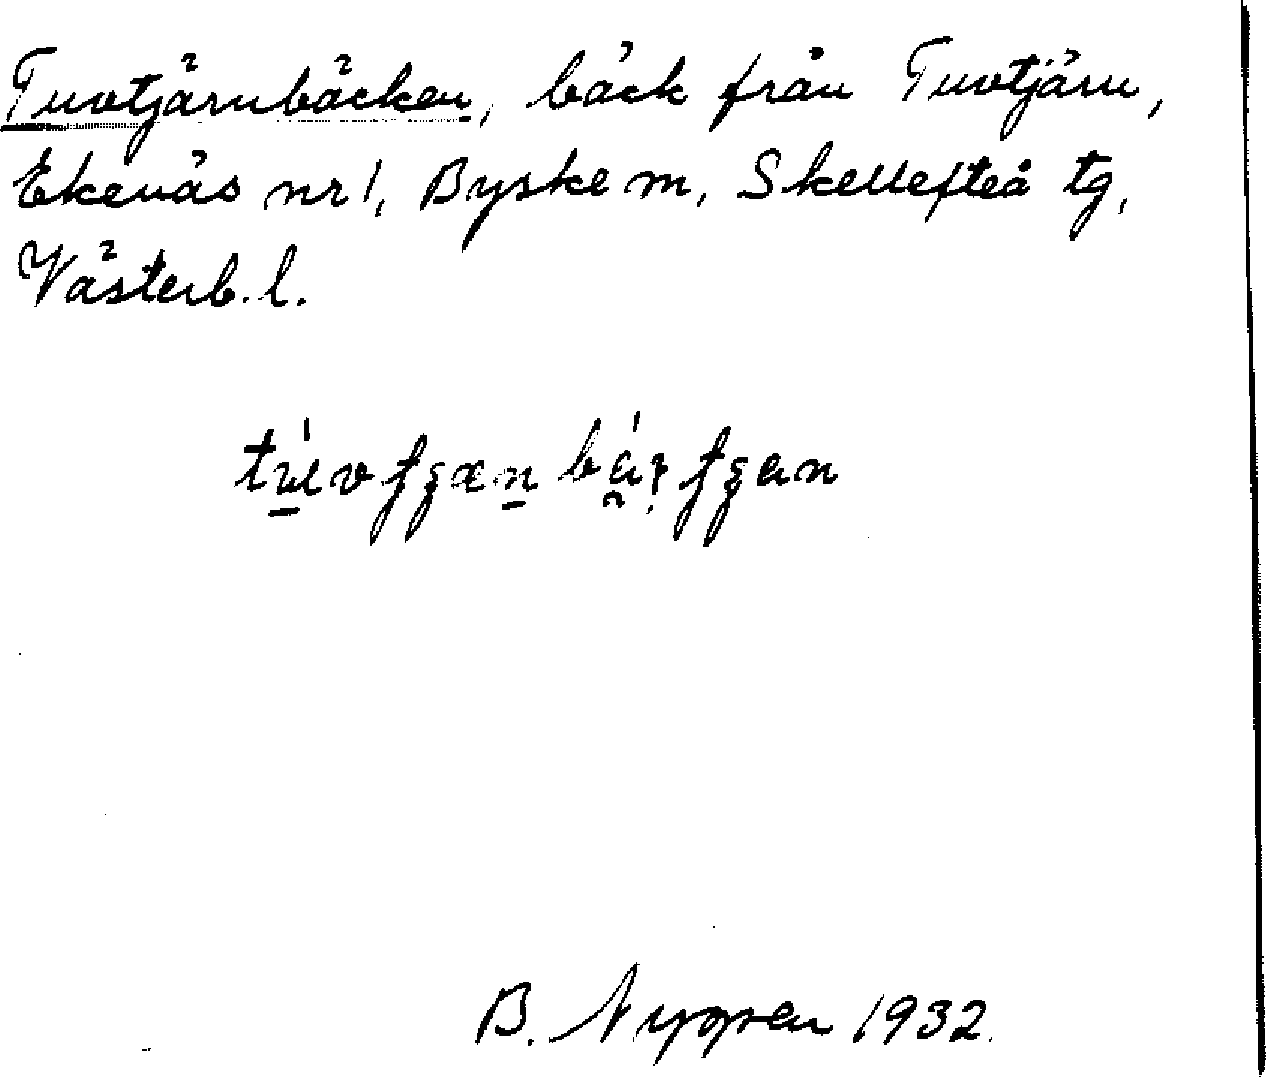 Tuvtjärnbäcken, bäck från Tuvtjärn,
Ekenäs nr 1, Byske m, Skellefteå tg,
Västerb. l.
B. Nygren 1932.